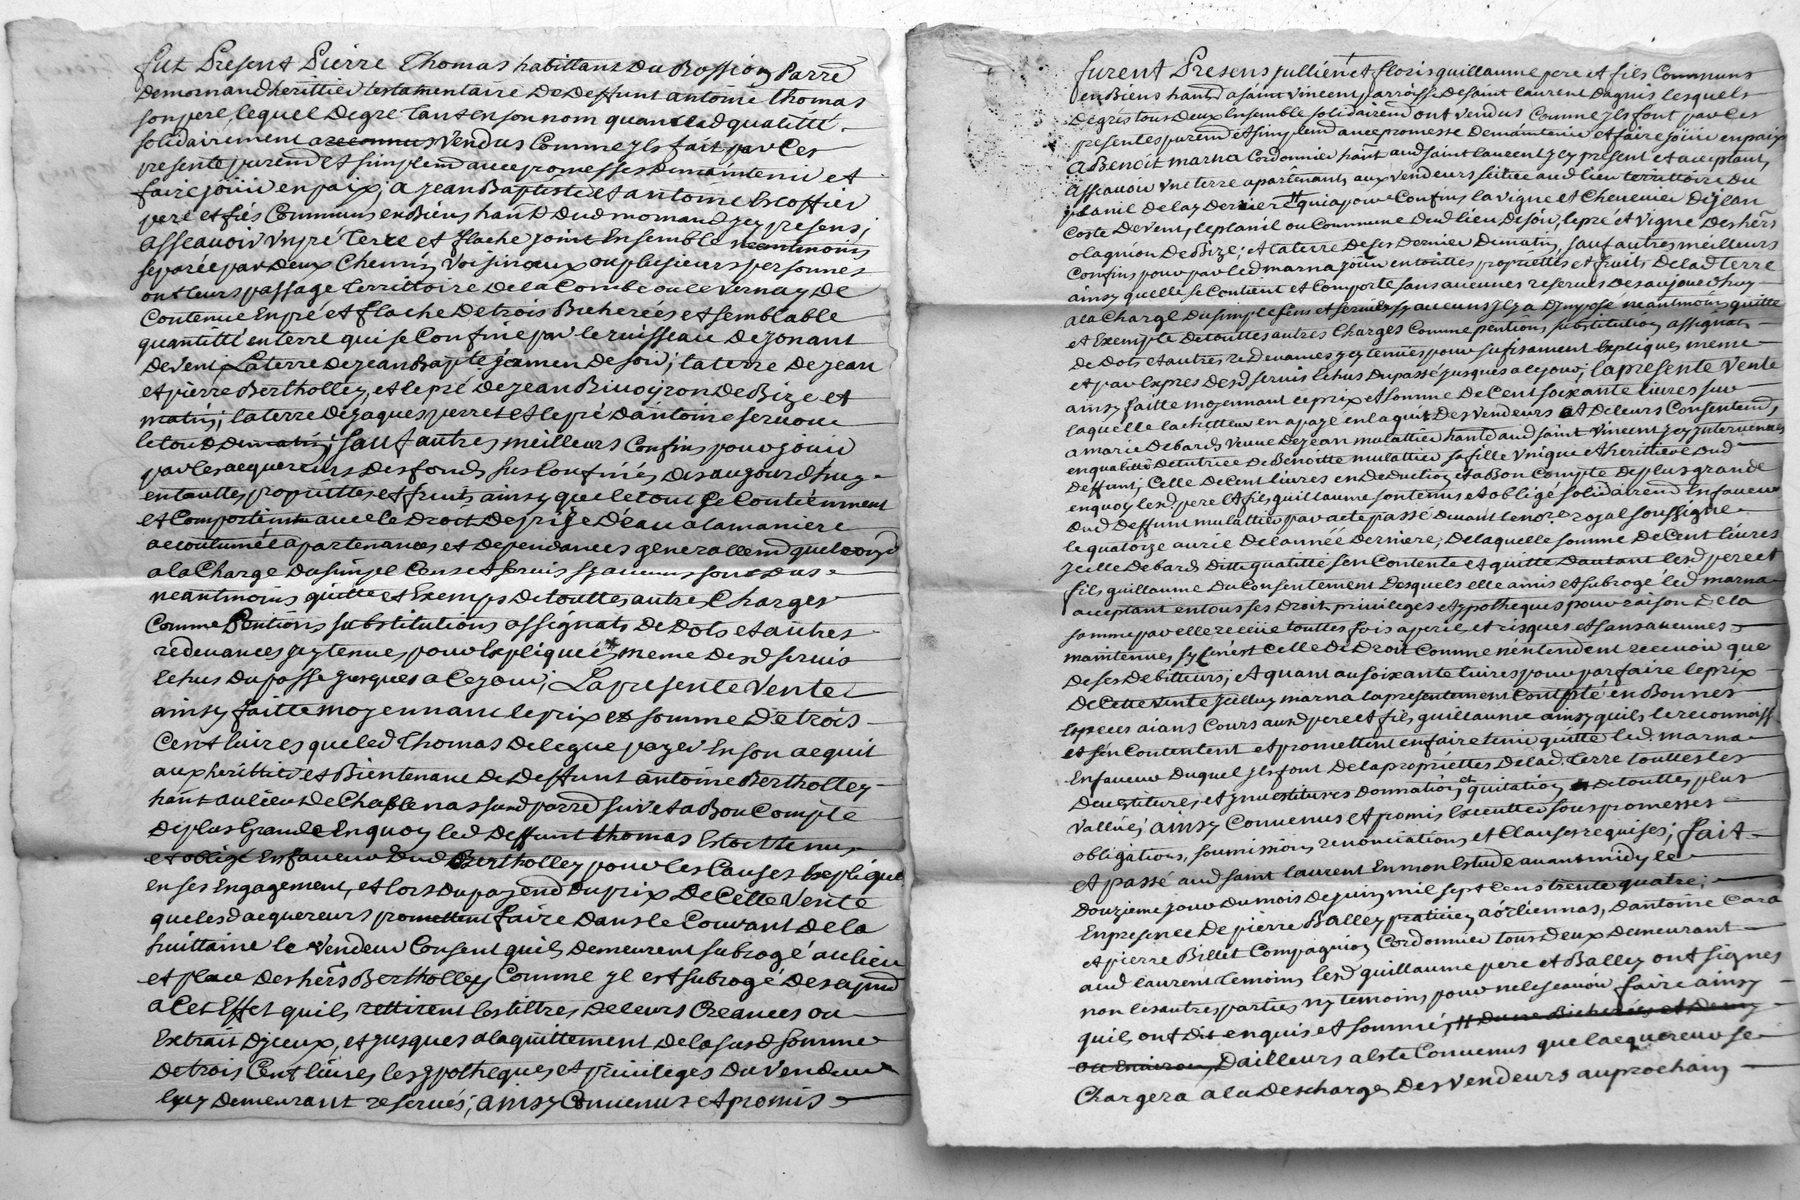 fut Present Pierre Thomas habittant Du Bossion Parre
De mornand herittier testamentaire De Deffunt antoine thomas
son pere, lequel De gre tant en son nom quand la d qualitté
solidairement a reconnus vendus Comme yls fait par Ces
presente purem et simplem avec promesses De maintenir et
faire joüir en paix, a jean Baptiste et antoine Escoffier
pere et fiés Communs en Biens hant D dud mornand yey presens,
assçavoir un pré terre et flache joint Ensemble neantmoins
separée par Deux Chemin, Voisinaux ou plusieurs personnes
ont leurs passage territtoire De la Combe ou le Vernay De
Contenue En pré et flache De trois Bicherées et semblable
quantitté en terre qui se Confine par le ruisseau De jonant
De vent, La terre De jean Baptiste jamen De soir, la terre De jean
et pierre Bertholley, et le pré De jean De Bize et
matin; la terre De jaques perret et le pré D antoine servoue
le tout De matin; sauf autres meilleurs Confins pour joüir
par les acquereurs Des fonds sus Confinés Des aujourd'huy
en touttes propriettes et fruits ainsy que le tout se Contiennent
et Comportent avec le Droit De prise D'eau a la maniere
accoutumée apartenances et Dependances generallem quelconq
a la Charge Du simple Cens et servis sy aucuns sont Dus
neantmoins quitte et Exempt De touttes autres Charges
Comme Pentions substitutions assignats De Dots et autres
redevances yey tenues pour Expliquée meme Des d servis
Echus Du passe jusques a Ce jour; La presente Vente
ainsy faitte moyennant le prix et somme De trois
Cent livres que led Thomas Delegue payer En son acquit
aux herittier et Bientenant De Deffunt antoine Bertholley
hant au lieu De Chablenas sud parre sur et a Bon Compte
De plus Grande En quoy led Deffunt thomas Etoit tenu
et obligé En faveur Dud Bertholley pour les Causes Expliqué
en ses Engagement, et lors Du payem Du prix De Cette Vente
que les d acquereurs promettent faire Dans le Courant De la
huittaine le vendeur Consent quils Demeurent subrogé au lieu
et place Des hers Bertholley Comme yl est subrogé Des a pnd
a Cet Effet quils rettirent les tiltres De leurs Creances ou
Extrait D'yceux, et jusques a laquittement De la susd somme
De trois Cent livres les ypotheques et privileges Du Vendeur
luy Demeurant reservés; ainsy Convenus et promis
furent Presens jullien et floris guillaume pere et fils Communs
en Biens hant a saint vincent parroisse De saint laurent Dagnis lesquels
De gris tous Deux Ensemble solidairem ont vendus Comme yls font par Ces
presentes purem et simplem avec promesse De maintenir et faire joüir en paix
a Benoit marna Cordonnier hant aud saint laurent yey present et acceptant,
assçavoir une terre apartenant, aux vendeurs scituée aud lieu territtoire Du
planil De la y Derniere qui a pour Confins la vigne et Chenevier De jean
Coste De vent, le planil ou Commune Dud lieu De soir, le pré et vigne Des hers
olagnion De Bize; et la terre De ses Dernier De matin, sauf autres meilleurs
Confins pour par led marna joüir en touttes propriettes et fruits De lad terre
ainsy quelle se Contient et Comporte sans aucunes reserves Des aujourd'huy
a la Charge Du simple sens et servis sy aucuns yl y a D'ymposé neantmoins quitte
et Exempte De touttes autres Charges Comme pentions, substitution, assignat
de Dots et autres redevances yey tenües pour sufisament Expliques, meme
et par Expres Desd servis Echus Du passé jusques a ce jour; la presente Vente
ainsy faitte moyennant le prix et somme De Cent soixante livres sur
laquelle lachetteur en a payé en laquit Des vendeurs et De leurs Consentem,
a marie Debard, veuve De jean mulattier hant aud saint vincent yey yntervenant
en qualitté De tutrice De Benoitte mulattier sa fille vnique et herittiere Dud
Deffunt, Celle De Cent livres en Deduction et a Bon Compte De plus grande
en quoy lesd pere et fils guillaume sont tenus et obligé solidairem En faveur
Dud Deffunt mulattier par acte passé Devant le nore royal soussigne
le quatorze avril De lannée Derniere; De laquelle somme De Cent livres
ycelle Debard Ditte qualitté s'en Contente et quitte Dautant lesd pere et
fils guillaume Du Consentement Desquels elle a mis et subrogé led marna
acceptant en tous ses Droit, privileges et ypotheques pour raison De la
somme par elle receüe touttes fois a peril et risques et sans aucunes
maintenues sy Cen est Celle De Droit Comme n'entendent recevoir que
De ses Debitteurs; et a quant au soixante livres pour parfaire le prix
De Cette Vente yeelluy marna la presentement Compté en Bonnes
Especes aians Cours ausd pere et fils guillaume ainsy quils le reconnoiss
et s'en Contentent et promettent en faire tenir quitte led marna
En faveur Duquel yls font De la propriettes De lad terre touttes les
Devestitures, et ynvestitures Donnation, et quitation De touttes plus
Vallüe; ainsy Convenus et promis Executter sous promesses
obligations, soumissions, renonciations et Clauses requises; fait
et passé aud saint laurent En mon Estude avant midy le
Douzieme jour Du mois De juin mil sept Cens trente quatre;
En presence De pierre Balley praticien a orliennas, D antoine Cara
et pierre Billet Compagnion Cordonnier tous Deux Demeurant
aud laurent temoins lesd guillaume pere et Balley ont signes
non les autres parties ny temoins pour ne le sçavoir faire ainsy
quil, ont dit enquis et sommé, # D une Bicherées et Demy
ou Environ, D'ailleurs a este Convenus que lacquereur se
Chargera a la Descharge Des Vendeurs au prochain